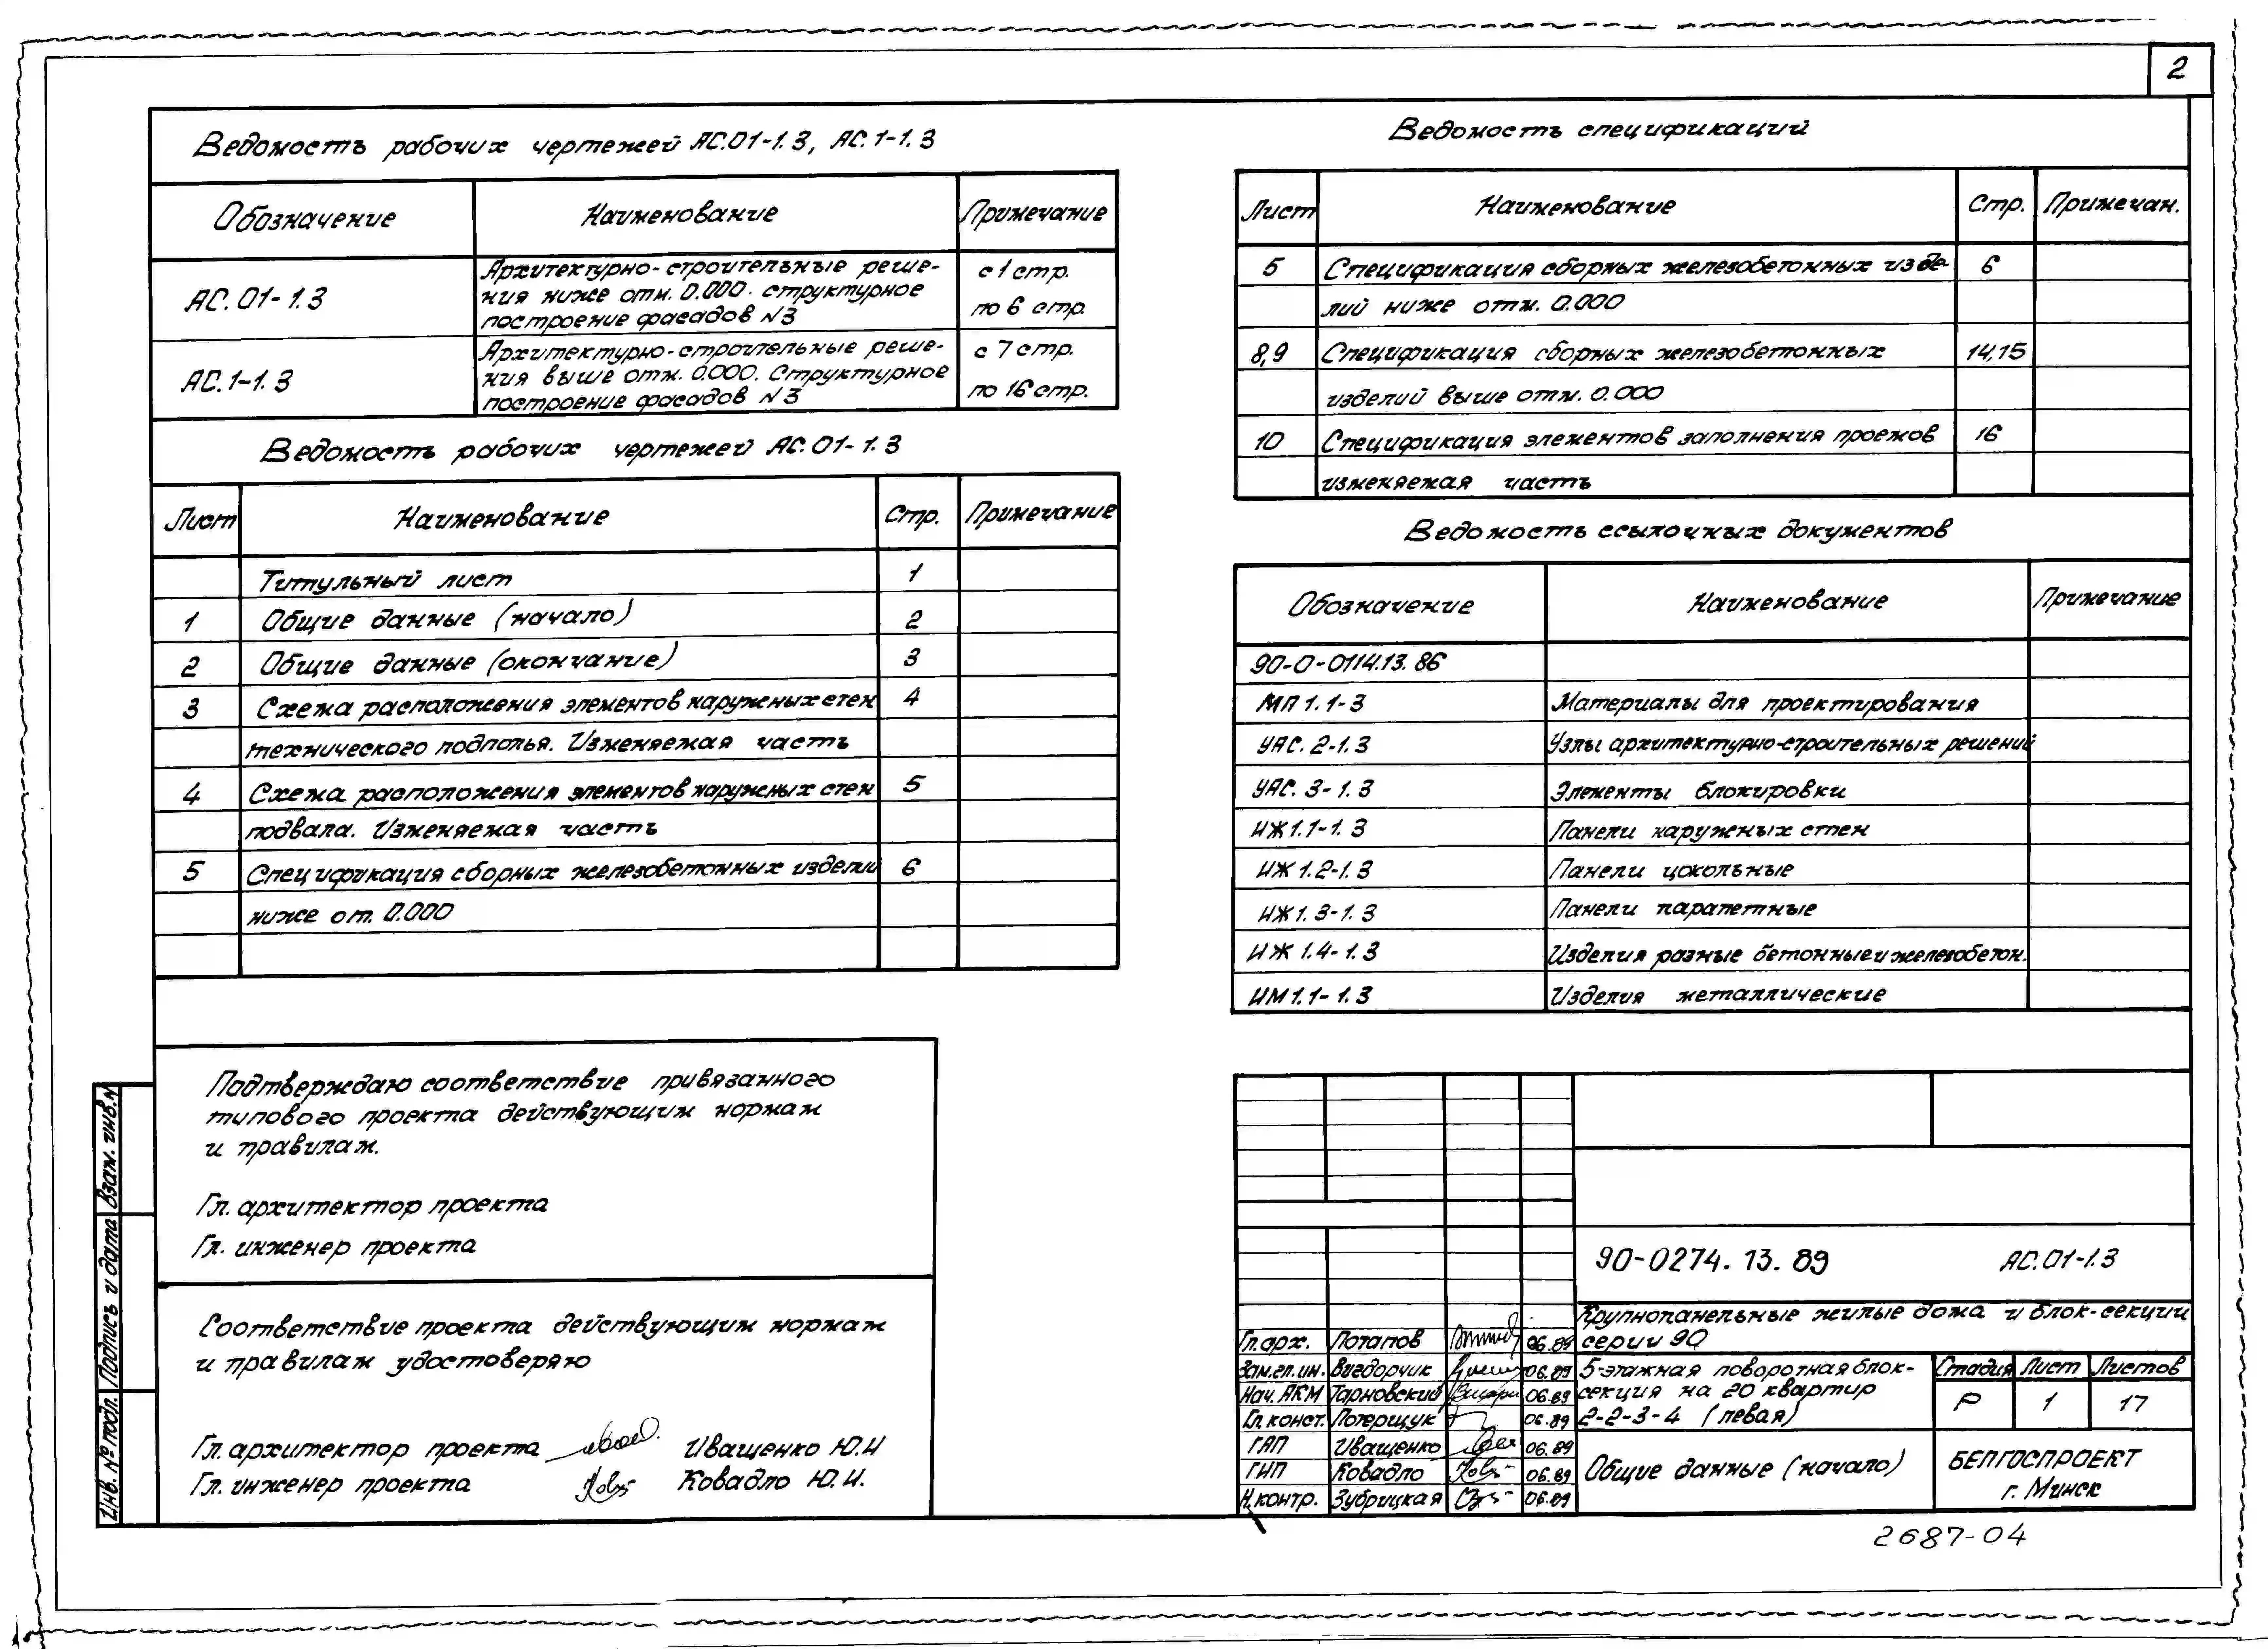 2
Ведомость рабочих чертежей АС.01-1.3, АС.1-1.3
Обозначение Наименование Примечание
АС.01-1.3 Архитектурно-строительные реше- с 1 стр.
ния ниже отм. 0.000. структурное по 6 стр.
построение фасадов N3
АС.1-1.3 Архитектурно-строительные реше- с 7 стр.
ния выше отм. 0.000. Структурное по 16 стр.
построение фасадов N3
Ведомость рабочих чертежей АС.01-1.3
Лист Наименование Стр. Примечание
Титульный лист 1
1 Общие данные (начало) 2
2 Общие данные (окончание) 3
3 Схема расположения элементов наружных стен 4
технического подполья. Изменяемая часть
4 Схема расположения элементов наружных стен 5
подвала. Изменяемая часть
5 Спецификация сборных железобетонных изделий 6
ниже от. 0.000
Подтверждаю соответствие привязанного
типового проекта действующим нормам
и правилам.
Гл. архитектор проекта
Гл. инженер проекта
Соответствие проекта действующим нормам
и правилам удостоверяю
Гл. архитектор проекта Иващенко Ю.И
Гл. инженер проекта Ковадло Ю.И.
Взам. инв.N
Подпись и дата
Инв. № подл.
Ведомость спецификаций
Лист Наименование Стр. Примечан.
5 Спецификация сборных железобетонных изде- 6
лий ниже отм. 0.000
8,9 Спецификация сборных железобетонных 14,15
изделий выше отм. 0.000
10 Спецификация элементов заполнения проемов 16
изменяемая часть
Ведомость ссылочных документов
Обозначение Наименование Примечание
90-0-0114.13.86
МП 1.1-3 Материалы для проектирования
УАС. 2-1.3 Узлы архитектурно-строительных решений
УАС. 3-1.3 Элементы блокировки
ИЖ 1.1-1.3 Панели наружных стен
ИЖ 1.2-1.3 Панели цокольные
ИЖ 1.3-1.3 Панели парапетные
ИЖ 1.4-1.3 Изделия разные бетонные и железобетон.
ИМ 1.1-1.3 Изделия металлические
90-0274.13.89 АС.01-1.3
Крупнопанельные жилые дома и блок-секции
серии 90
Гл.арх. Потапов 06.89
Зам.гл.ин. Вигдорчик 06.89
Нач. АКМ Тарновский 06.89
Гл. конст. Потерщук 06.89
ГАП Иващенко 06.89
ГИП Ковадло 06.89
Н.контр. Зубрицкая 06.89
5-этажная поворотная блок-
секция на 20 квартир
2-2-3-4 (левая)
Стадия Лист Листов
Р 1 17
Общие данные (начало)
БЕЛГОСПРОЕКТ
г. Минск
2687-04